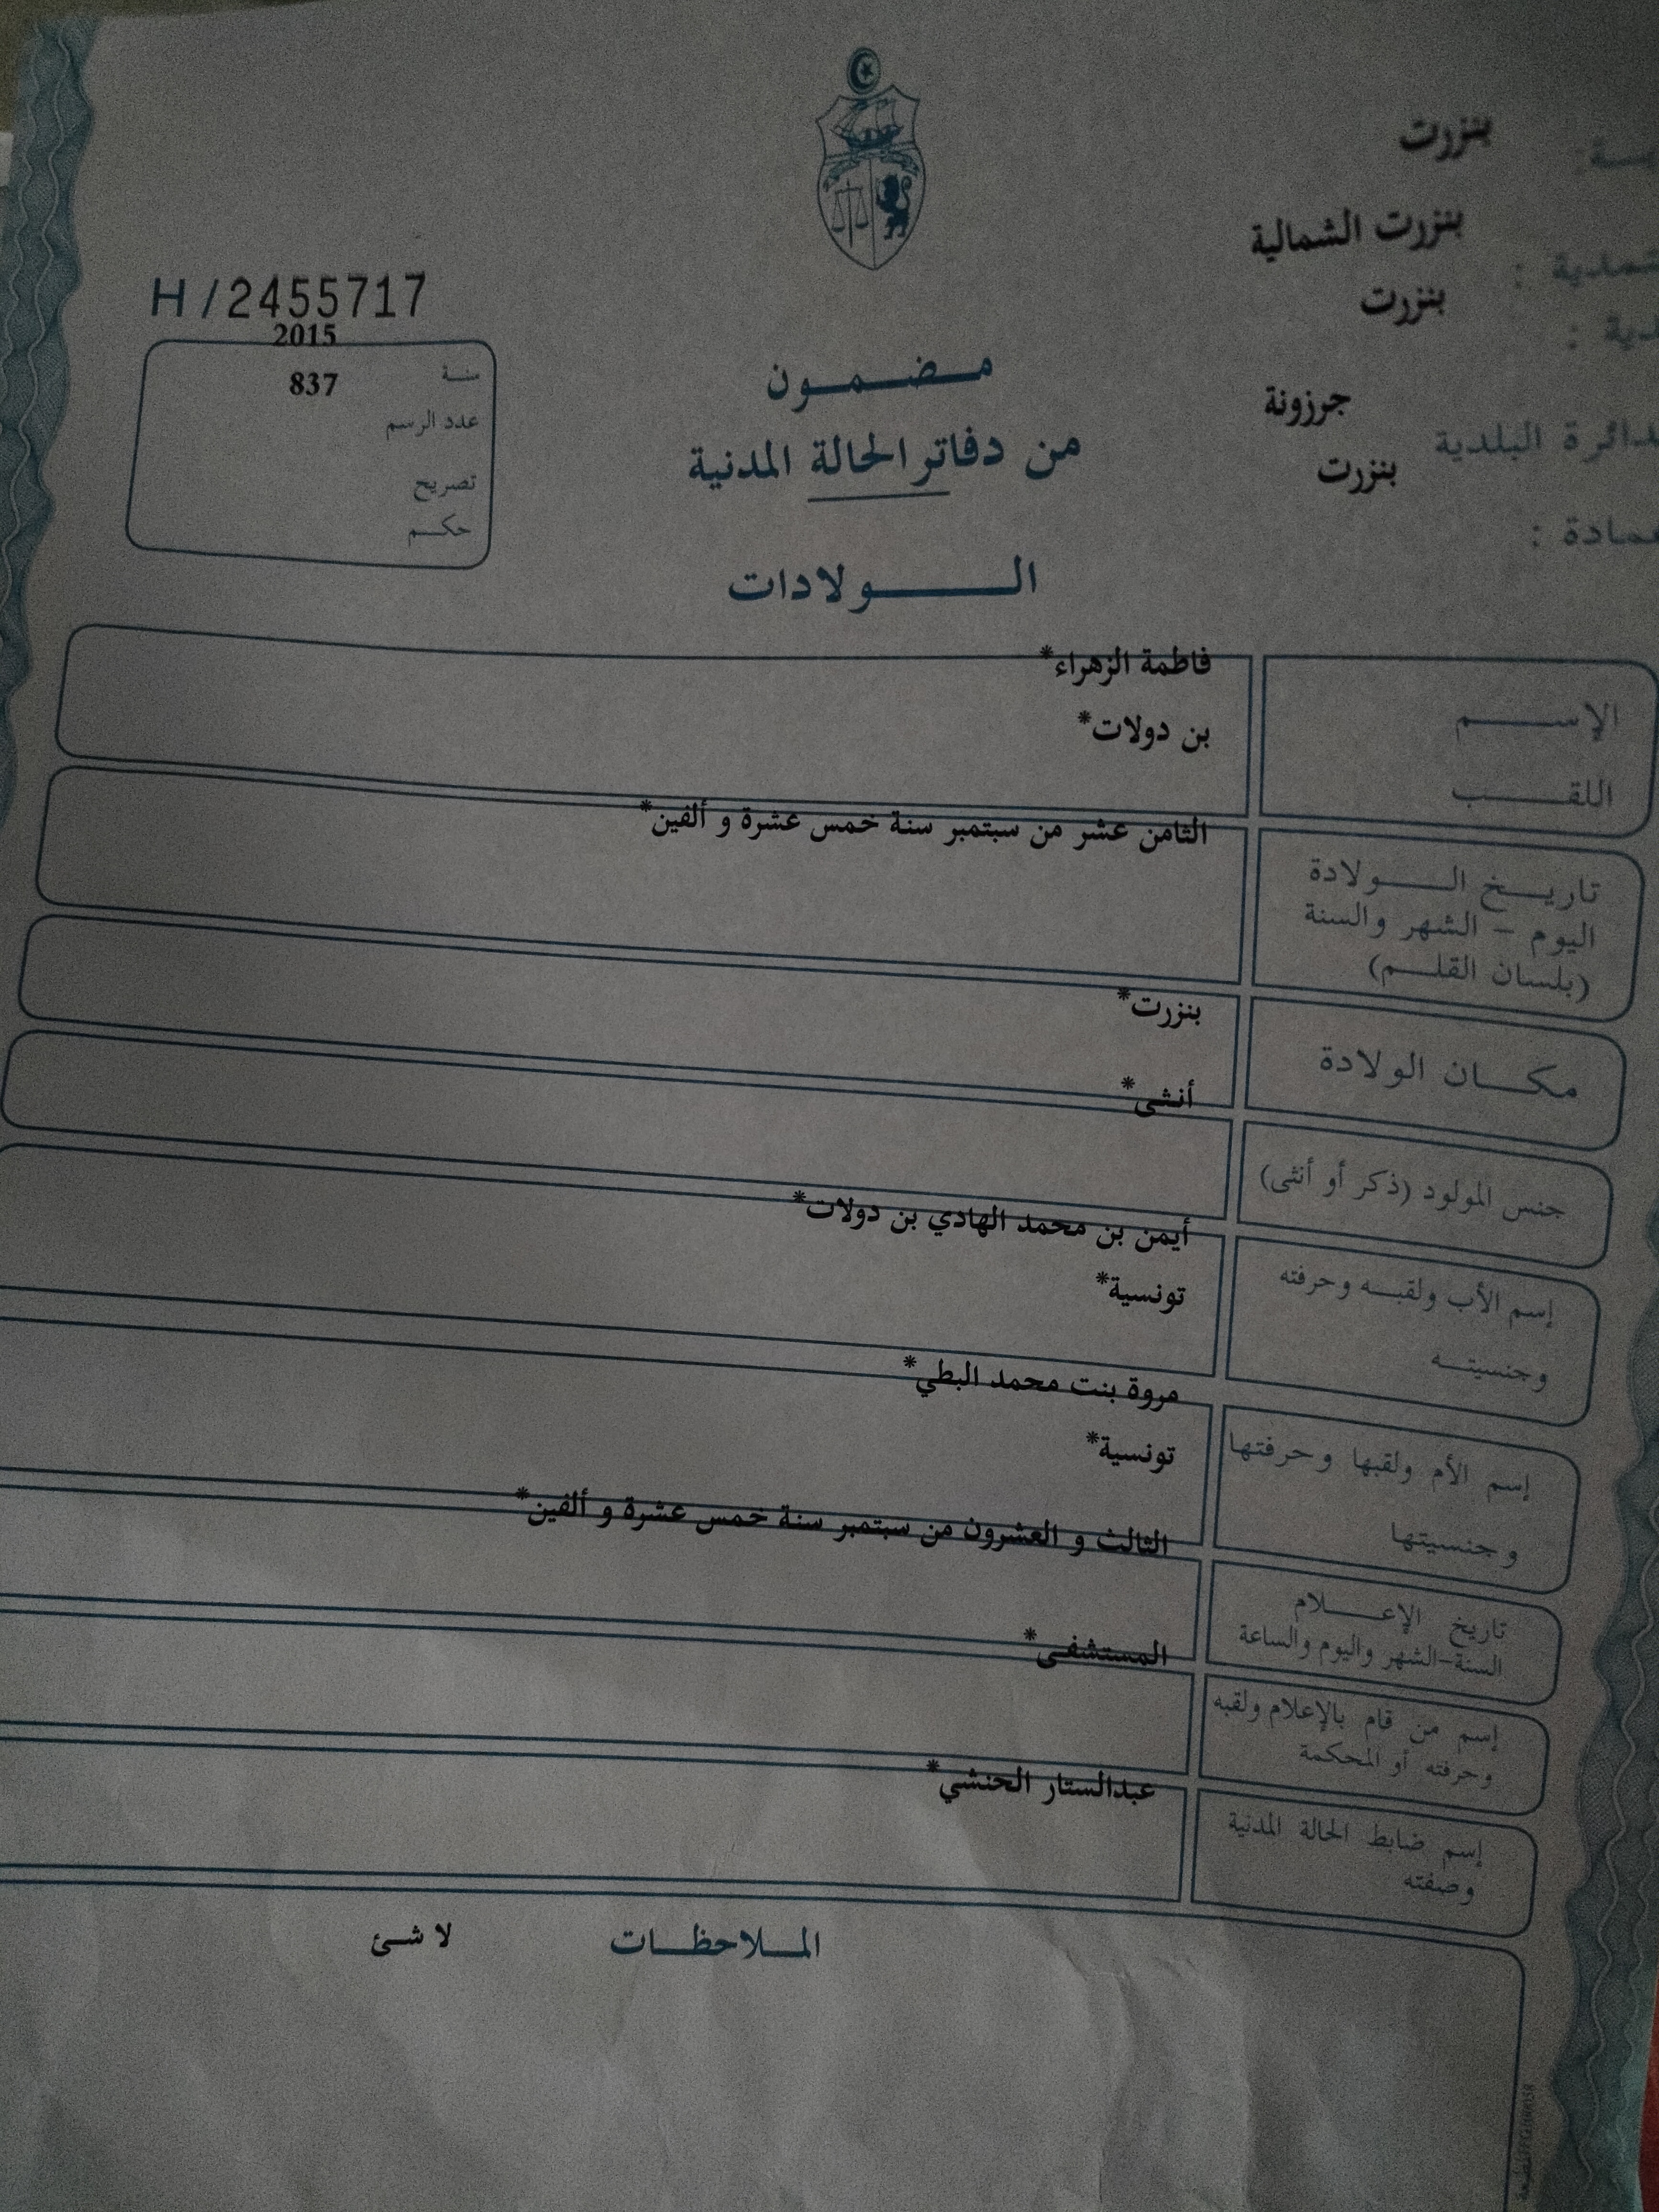 بنزرت
بنزرت الشمالية
بنزرت
جرزونة
دائرة البلدية
بنزرت
عمادة :
H/2455717
2015
سنة
837
عدد الرسم
تصريح
حكم
مضمون
من دفاتر الحالة المدنية
الولادات
الإسم
فاطمة الزهراء*
اللقب
بن دولات*
تاريخ الولادة
اليوم - الشهر والسنة
(بلسان القلم)
الثامن عشر من سبتمبر سنة خمس عشرة و ألفين*
مكان الولادة
بنزرت*
جنس المولود (ذكر أو أنثى)
أنثى*
إسم الأب ولقبه وحرفته
وجنسيته
أيمن بن محمد الهادي بن دولات*
تونسية*
إسم الأم ولقبها وحرفتها
وجنسيتها
مروة بنت محمد البطي*
تونسية*
تاريخ الإعلام
السنة-الشهر واليوم والساعة
الثالث و العشرون من سبتمبر سنة خمس عشرة و ألفين*
إسم من قام بالإعلام ولقبه
وحرفته أو المحكمة
المستشفى*
إسم ضابط الحالة المدنية
وصفته
عبدالستار الحنشي*
الملاحظات
لا شئ